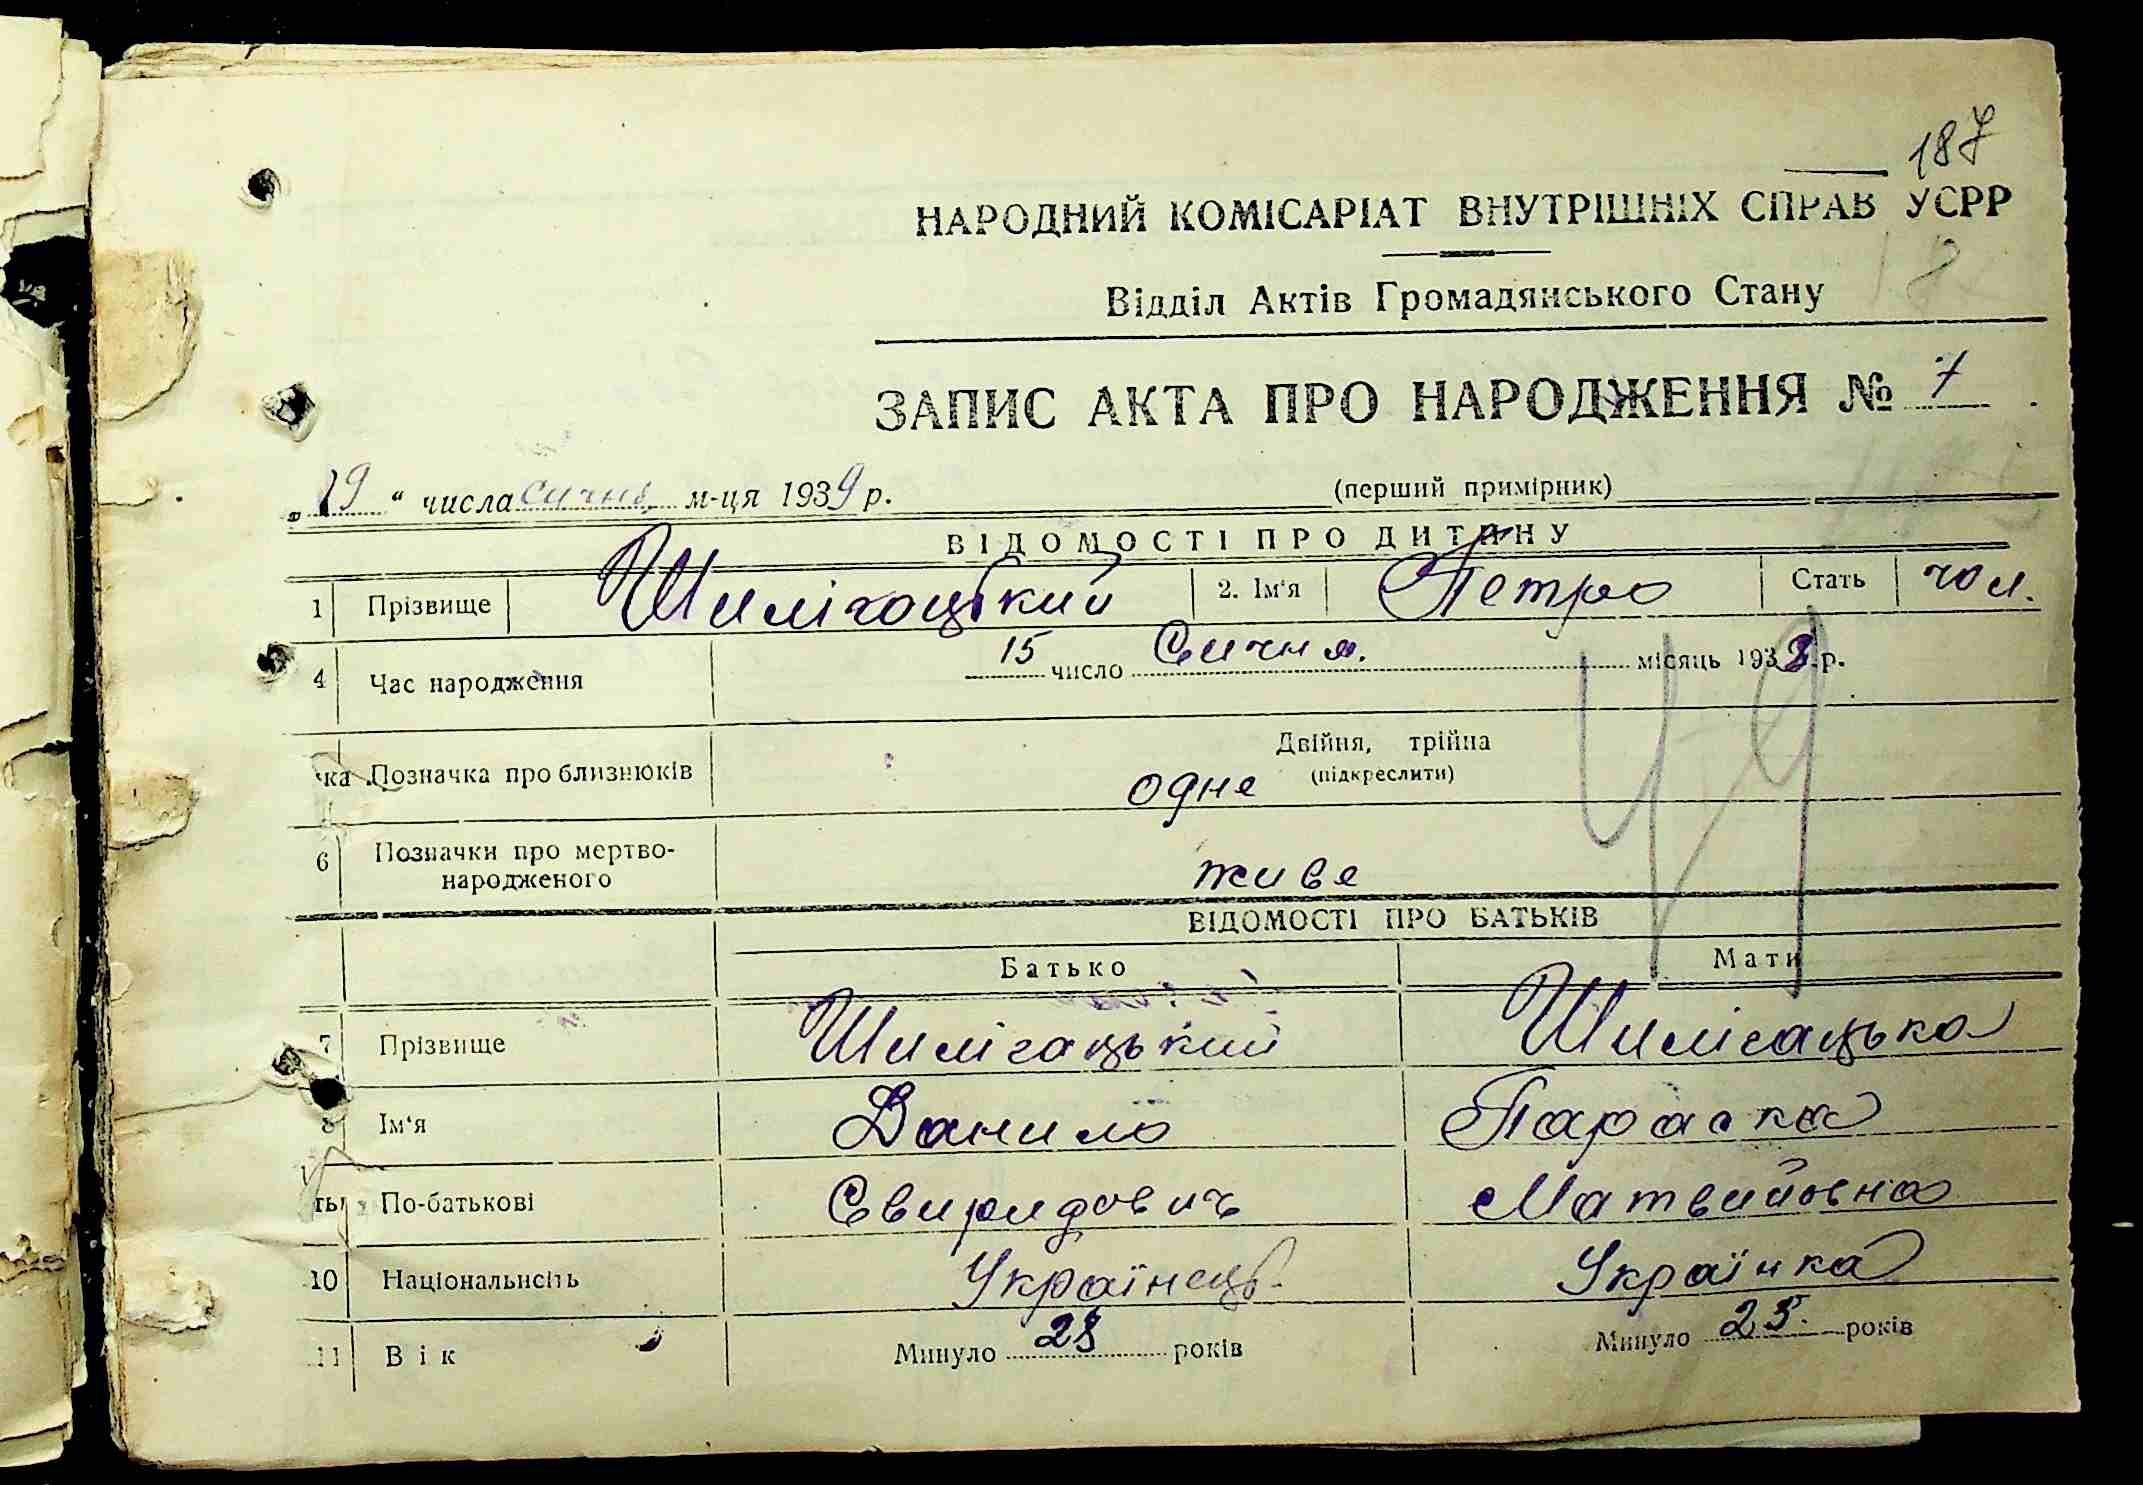 187
НАРОДНИЙ КОМІСАРІАТ ВНУТРІШНІХ СПРАВ УСРР
Відділ Актів Громадянського Стану
ЗАПИС АКТА ПРО НАРОДЖЕННЯ № 7
„19“ числа січня м-ця 1939 р. (перший примірник)
ВІДОМОСТІ ПРО ДИТИНУ
1 Прізвище Шилігоцький 2. Ім'я Петро Стать чол.
4 Час народження 15 число Січня. місяць 1938 р.
ка Позначка про близнюків одне Двійня, трійна (підкреслити)
6 Позначки про мертво-
народженого живе
49
ВІДОМОСТІ ПРО БАТЬКІВ
Батько Мати
7 Прізвище Шилігацький Шилігацька
8 Ім'я Данило Параска
ть По-батькові Свиридович Матвийовна
10 Національність Українець. Українка
11 Вік Минуло 28 років Минуло 25. років